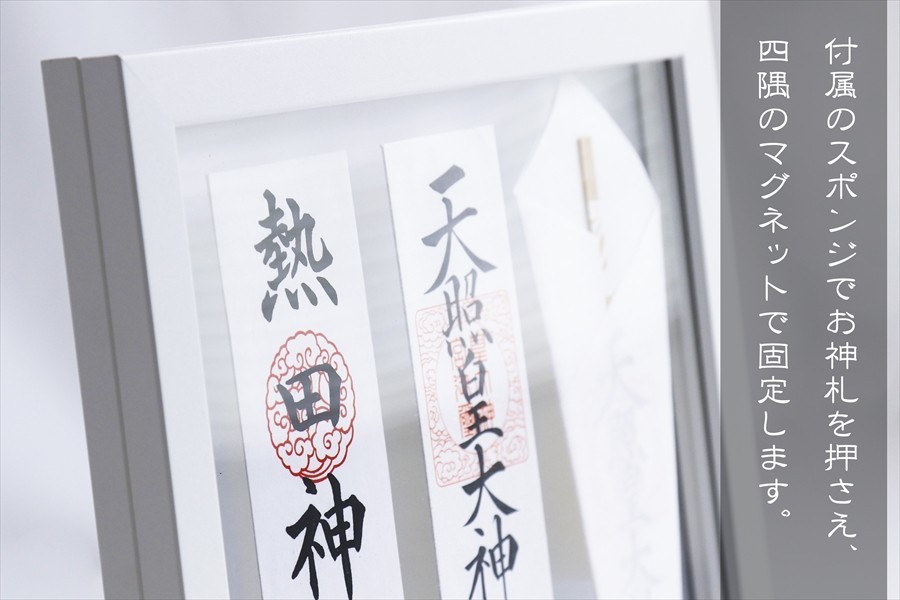 付属のスポンジでお神札を押さえ、
四隅のマグネットで固定します。
天照皇大神
熱田神